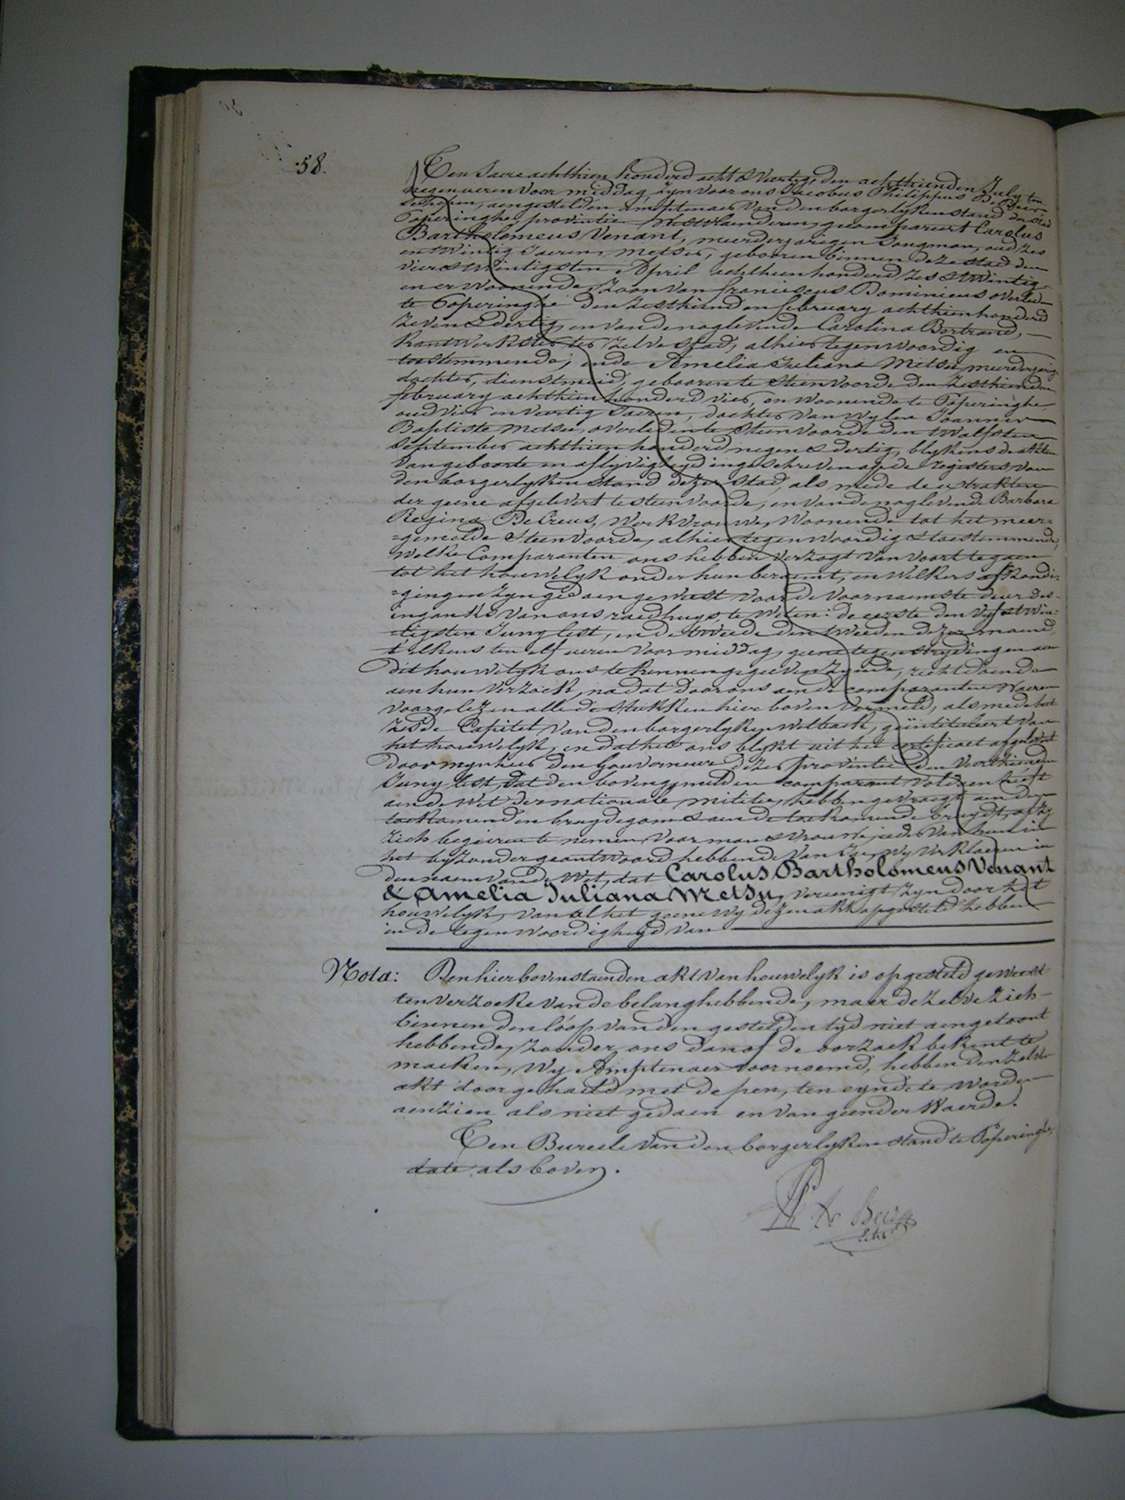 58.
Ten Jaere achthien honderd acht & veertig den achthienden July ten
negen ueren voor middag, zyn voor ons Jacobus Philippus De
schepen, aengestelden Amptenaer van den borgerlyken stand der stad
Poperinghe provintie Westvlanderen, gecompareert Carolus
Bartholomeus Venant, meerderjarigen Jongman, oud zes
en twintig Jaeren, metser, gebooren binnen deze stad den
vier & twintigsten April achthien honderd zes & twintig
en er woonende, zoon van Franciscus Dominicus overleden
te Poperinghe den zesthienden february achthien honderd
zeven & dertig, en van de noglevende Carolina Bertrand,
kantwerkster ter zelve stad, alhier tegenwoordig en
toestemmende; ende Amelia Juliana Metsu meerderjarige
dochter, dienstmeid, geboorente Steenvoorde den zesthienden
february achthien honderd vier, en woonende te Poperinghe
oud vier en veertig Jaeren, dochter van wylen Joannes
Baptiste Metsu, overleden te Steenvoorde den twalfsten
september achthien honderd negen & dertig, blykens de akten
van geboorte en aflyvigheyd ingeschreven op de registers van
den borgerlyken stand dezer stad, als mede de extrakten
der geene afgelevert te steenvoorde, en van de noglevende Barbara
Regina DeCreus, werkvrouwe, woonende tot het meer=
=gemelde Steenvoorde, alhier tegenwoordig & toestemmende;
Welke Comparanten ons hebben verzogt van voort te gaen
tot het houwelyk onder hun beraemt, en welkers afkondi=
=gingen zyn gedaen geweest voor de voornaemste deur des
ingank's van ons raedhuys te weten: de eerste den vyf & twin=
tigsten Juny lest, en de tweede den tweeden dezer maend,
telkens ten elf ueren voor middag, geene tegenstrydingen aen
dit houwelyk ons te kennen gegeven zynde, recht doende
aen hun verzoek, na dat door ons aen de comparanten waeren
voorgelezen alle de stukken hier boven vermeld, als mede het
zesde Capitel van den borgerlyken wetboek, geïntituleert van
het houwelyk, en dat het ons blykt uit het certificaet afgelevert
door mynheer den Gouverneur dezer provintie den veerthienden
Juny lest, dat den bovengemelden comparant voldaen heeft
aen de wet der nationaele militie, hebben gevraegt aen den
toekomenden bruydegom & aen de toekomende bruydt, of zy
zich begeeren te nemen voor man & vrouw, ieder van hun in
het byzonder geantwoord hebbende van Ja, wy verklaeren in
den naem van de Wet, dat Carolus Bartholomeus Venant
& Amelia Juliana Metsu, vereenigt zyn door het
houwelyk, van al het geene wy dezen akt opgesteld hebben
in de tegenwoordigheyd van
Nota: Den hierbovenstaenden akt van houwelyk is opgesteld geweest
ten verzoeke van de belanghebbende, maer dezelve zich
binnen den loop van den gestelden tyd niet aengetoont
hebbende, zonder ons danof de oorzaek bekent te
maeken, Wy Amptenaer voornoemd, hebben den zelven
akt doorgehaeld met de pen, ten eynde te worden
aenzien als niet gedaen en van geender Waerde.
Ten Bureele van den borgerlyken stand te Poperinghe,
date als boven.